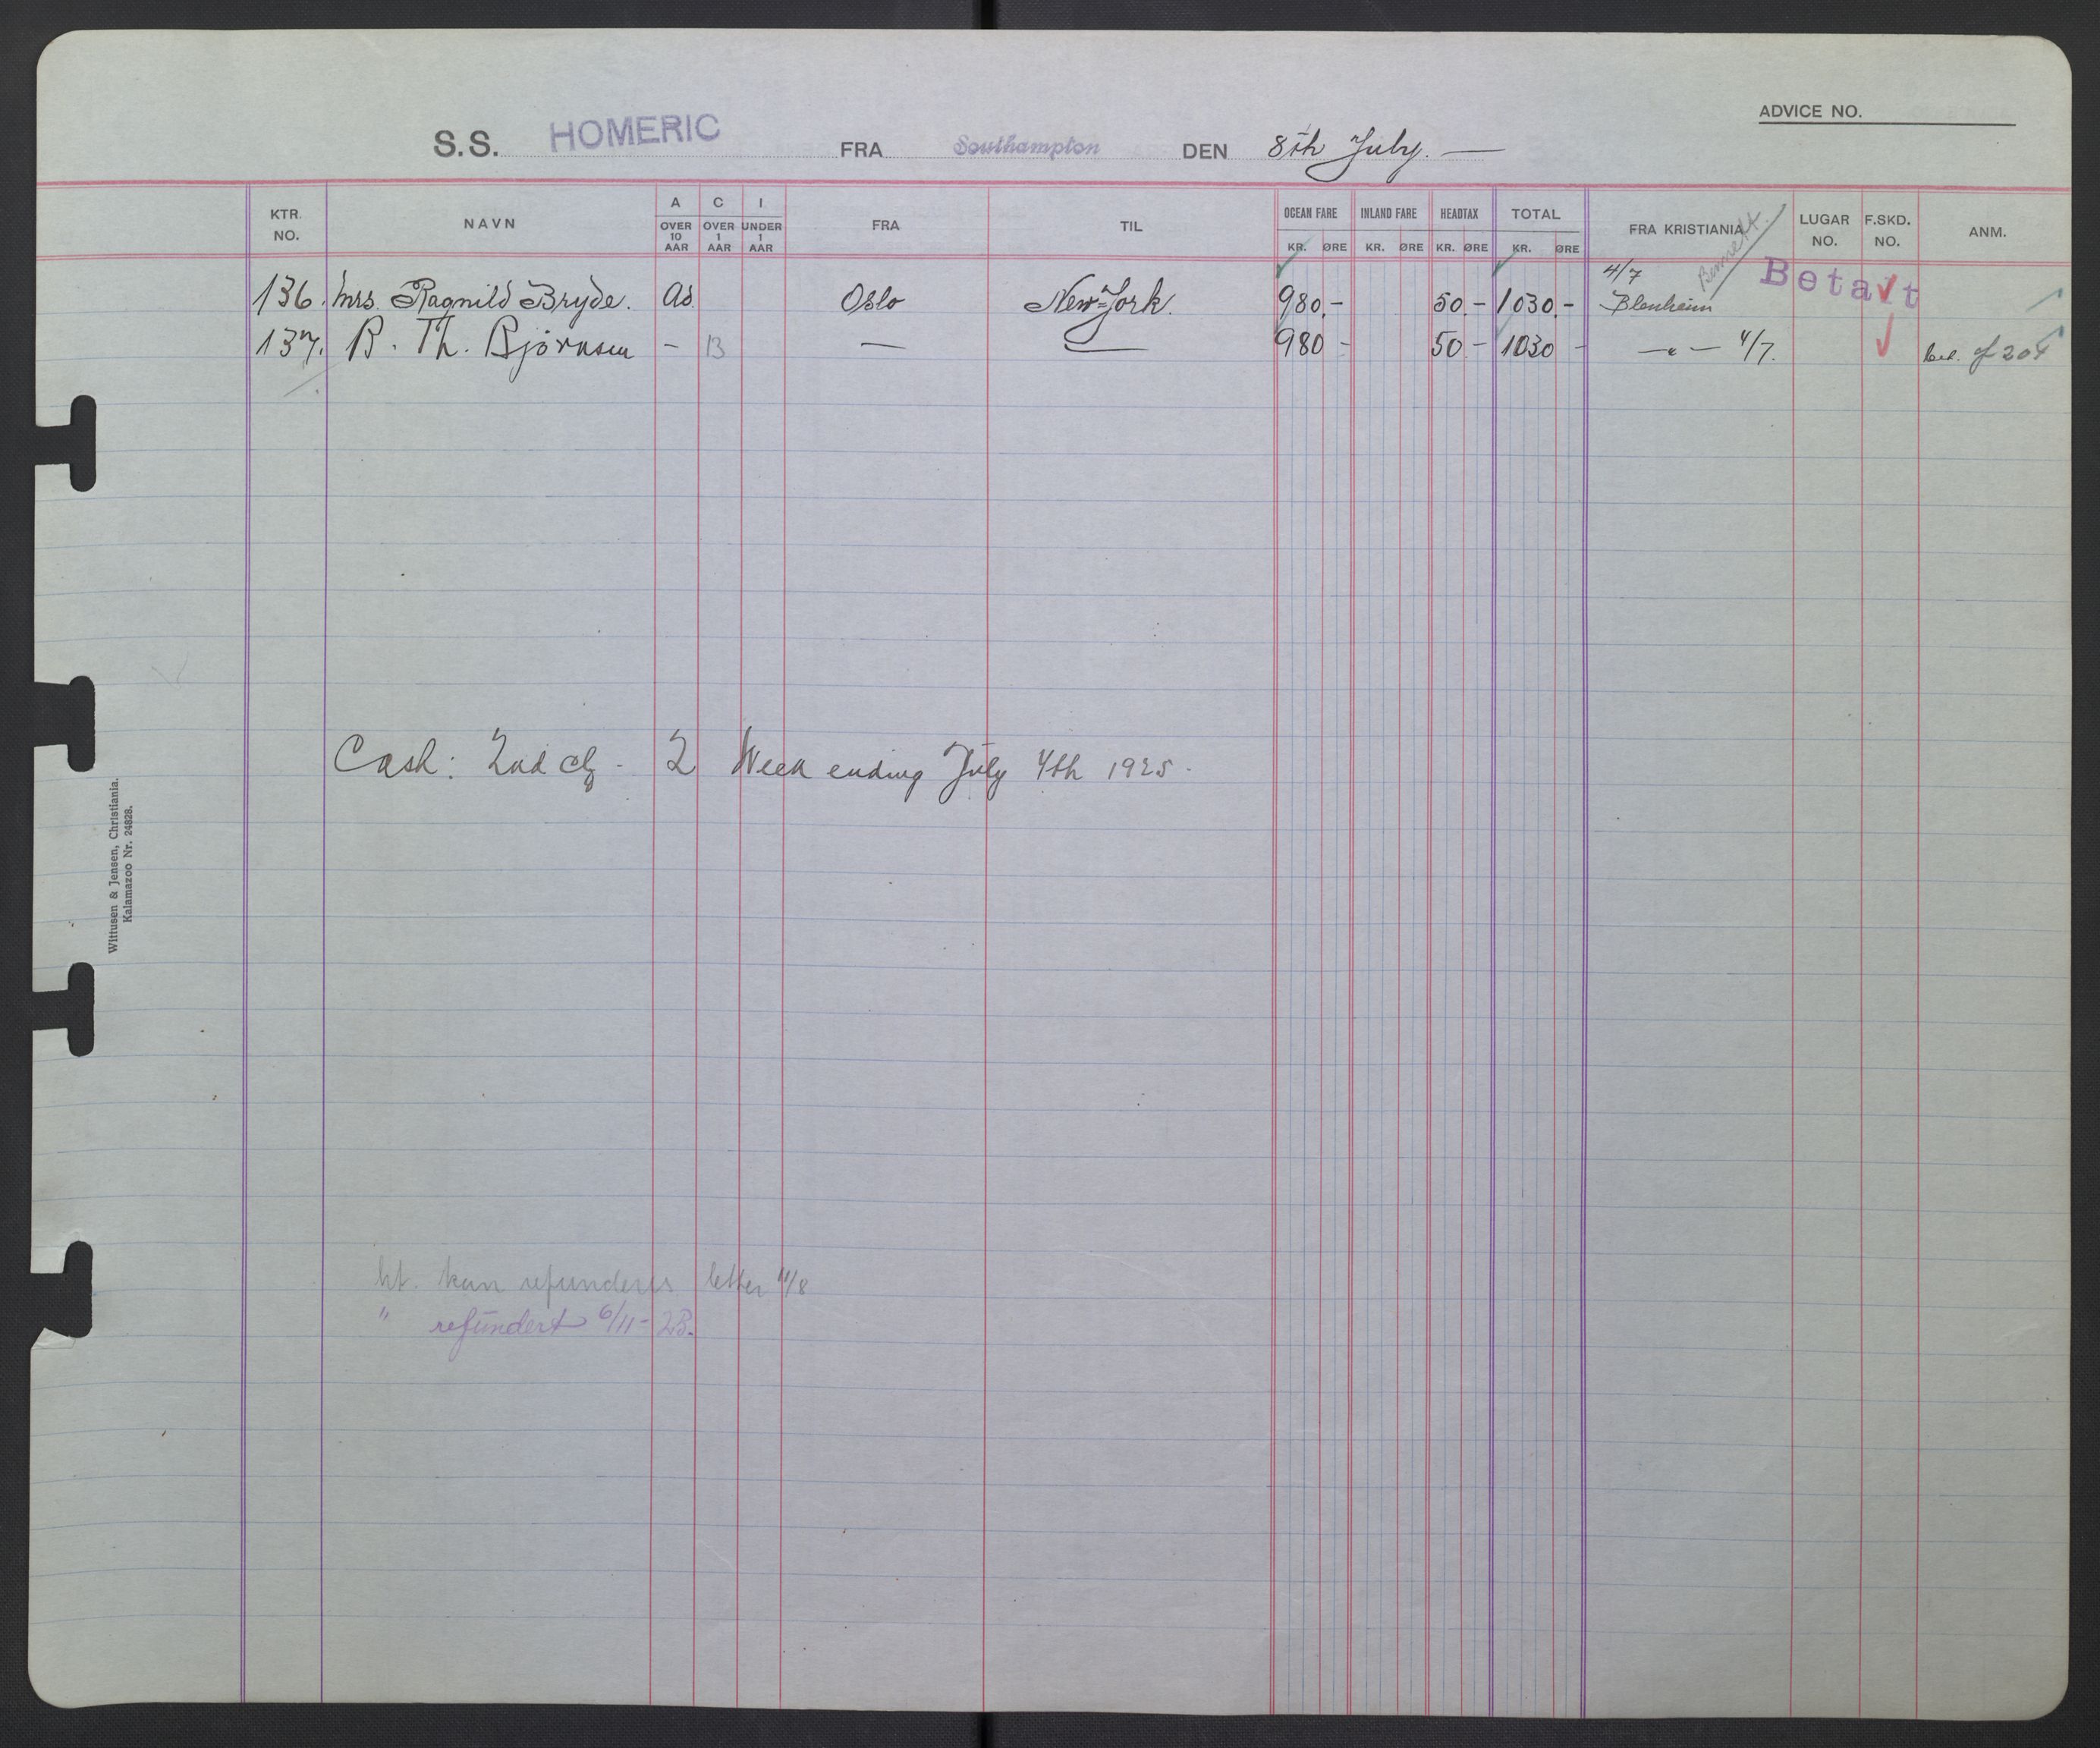 ADVICE NO.
S.S. HOMERIC FRA Southampton DEN 8th July. —
KTR. NO. NAVN A OVER 10 AAR C OVER 1 AAR I UNDER 1 AAR FRA TIL OCEAN FARE KR. ØRE INLAND FARE KR. ØRE HEADTAX KR. ØRE TOTAL KR. ØRE FRA KRISTIANIA LUGAR NO. F.SKD. NO. ANM.
Bennett.
4/7 Betalt
136. Mrs. Ragnild Bryde. Ad. Oslo New-York. 980,- 50,- 1030,- Blenheim
137. B. Th. Björnsen - 13 — — 980 - 50 - 1030 - —"— 4/7. bet. af 204
Cash: 2nd cl. - 2 Week ending July 4th 1925.
Wittusen & Jensen, Christiania.
Kalamazoo Nr. 24828.
ht. kan refunderes letter 11/8
" refundert 6/11-28.